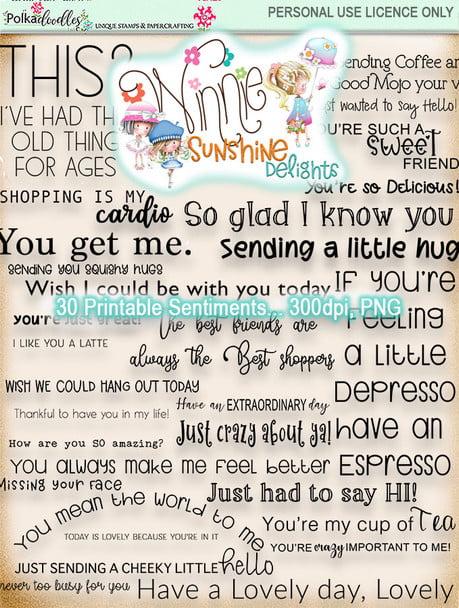 Polkadoodles
UNIQUE STAMPS & PAPERCRAFTING
PERSONAL USE LICENCE ONLY
THIS?
I'VE HAD TH
OLD THING
FOR AGES
Winnie
SUNSHINE
Delights
ending Coffee an
Good Mojo your w
st wanted to say Hello!
YOU'RE SUCH A
SWEET
FRIEND
You're so Delicious!
SHOPPING IS MY
cardio
So glad I know you
You get me.
Sending a little hug
SENDING YOU SQUISHY HUGS
Wish I could be with you today
30 Printable Sentiments... 300dpi, PNG
IF YOU'RE
FEELING
A LITTLE
DEPRESSO
HAVE AN
ESPRESSO
You're just great!
The best friends are
always the Best shoppers
I LIKE YOU A LATTE
WISH WE COULD HANG OUT TODAY
Have an EXTRAORDINARY day
Thankful to have you in my life!
Just crazy about ya!
How are you SO amazing?
YOU ALWAYS MAKE ME FEEL BETTER
Missing your face
Just had to say HI!
YOU MEAN THE WORLD TO ME
TODAY IS LOVELY BECAUSE YOU'RE IN IT
You're my cup of Tea
YOU'RE crazy IMPORTANT TO ME!
JUST SENDING A CHEEKY LITTLE hello
never too busy for you
Have a Lovely day, Lovely